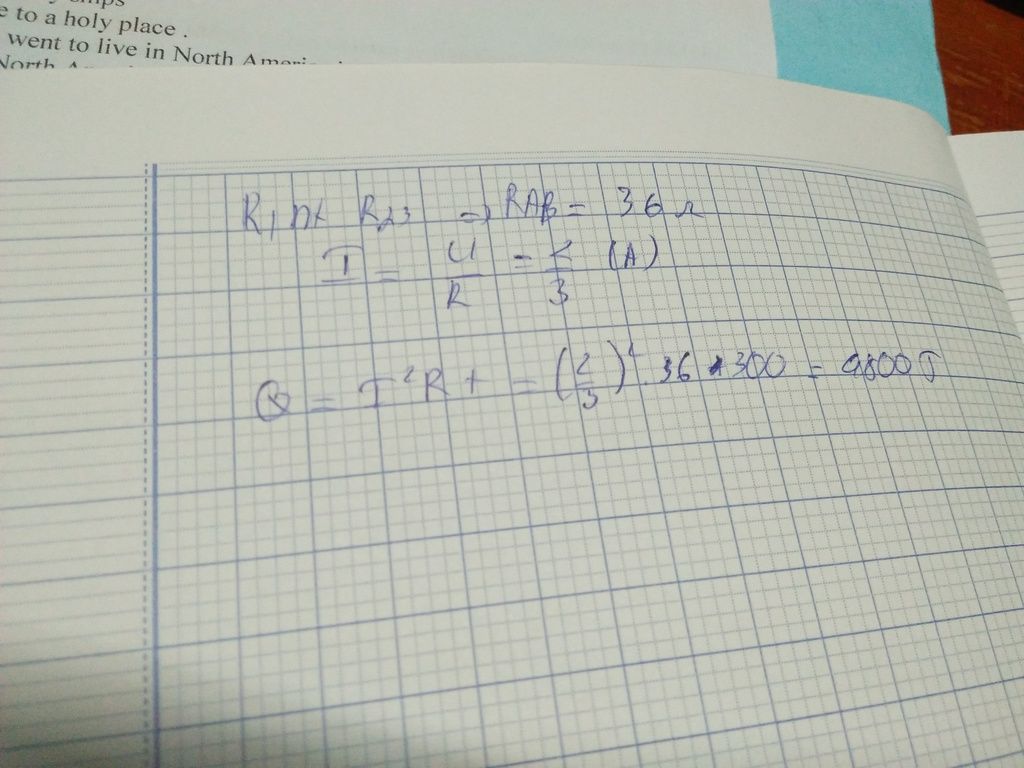 e to a holy place .
went to live in North Ameri
North A
R₁ nt R₂₃ => RAB = 36 Ω
I = U/R = 2/3 (A)
Q = I²Rt = (2/3)² . 36 . 300 = 4800J